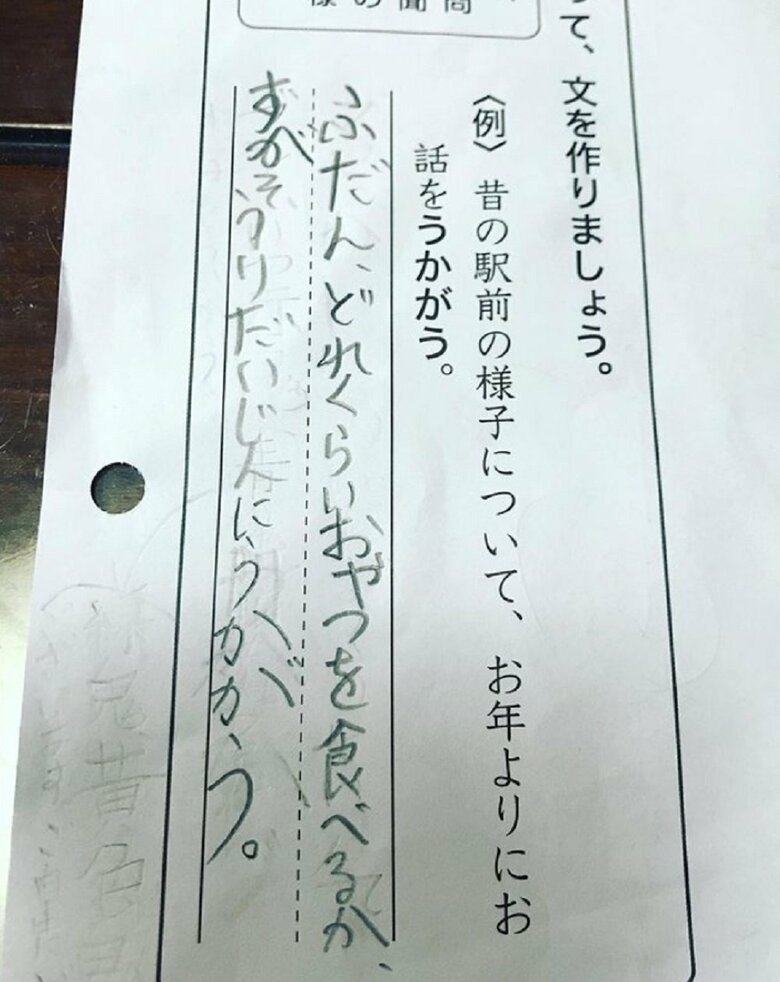 って、文を作りましょう。
様の聞問
〈例〉昔の駅前の様子について、お年よりにお
話をうかがう。
ふだん、どれくらいおやつを食べるか、
すがそうりだいじんにうかがう。